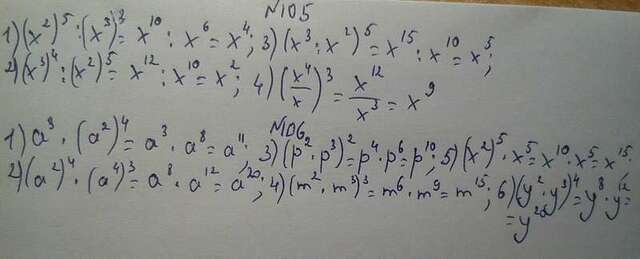 №105
1) (x²)⁵ : (x³)³ = x¹⁰ : x⁶ = x⁴; 3) (x³ · x²)⁵ = x¹⁵ : x¹⁰ = x⁵;
2) (x³)⁴ : (x²)⁵ = x¹² : x¹⁰ = x²; 4) (x⁴/x)³ = x¹²/x³ = x⁹
№106
1) a³ · (a²)⁴ = a³ · a⁸ = a¹¹; 3) (p² · p³)² = p⁴ · p⁶ = p¹⁰; 5) (x²)⁵ · x⁵ = x¹⁰ · x⁵ = x¹⁵
2) (a²)⁴ · (a⁴)³ = a⁸ · a¹² = a²⁰; 4) (m² · m³)³ = m⁶ · m⁹ = m¹⁵; 6) (y² · y³)⁴ = y⁸ · y¹² =
= y²⁰